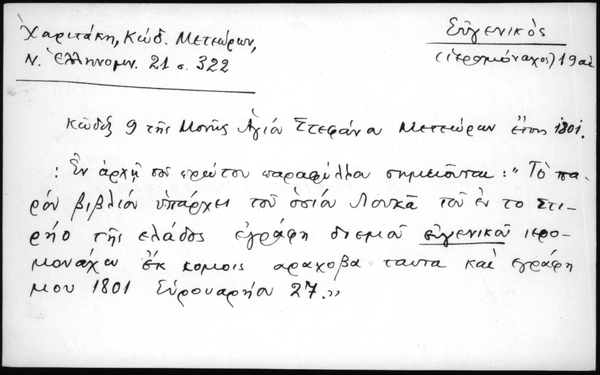 Χαριτάκη, Κώδ. Μετεώρων,
Ν. Ἑλληνομν. 21 σ. 322
Εὐγενικὸς
(ἱερομόναχος) 19 αἰ.
Κῶδιξ 9 τῆς Μονῆς Ἁγίου Στεφάνου Μετεώρων ἔτους 1801.
: Ἐν ἀρχῇ τοῦ πρώτου παραφύλλου σημειοῦται: "Τὸ πα-
ρὸν βιβλίον ὑπάρχει τοῦ ὁσίου Λουκᾶ τοῦ ἐν το Στι-
ρήο τῆς ελάδος ἐγράφη διεμοῦ εὐγενικοῦ ιερο-
μονάχου ἐκ κομοις αραχοβα ταυτα καὶ εγράφη
μου 1801 Εὑρουαρήου 27.„